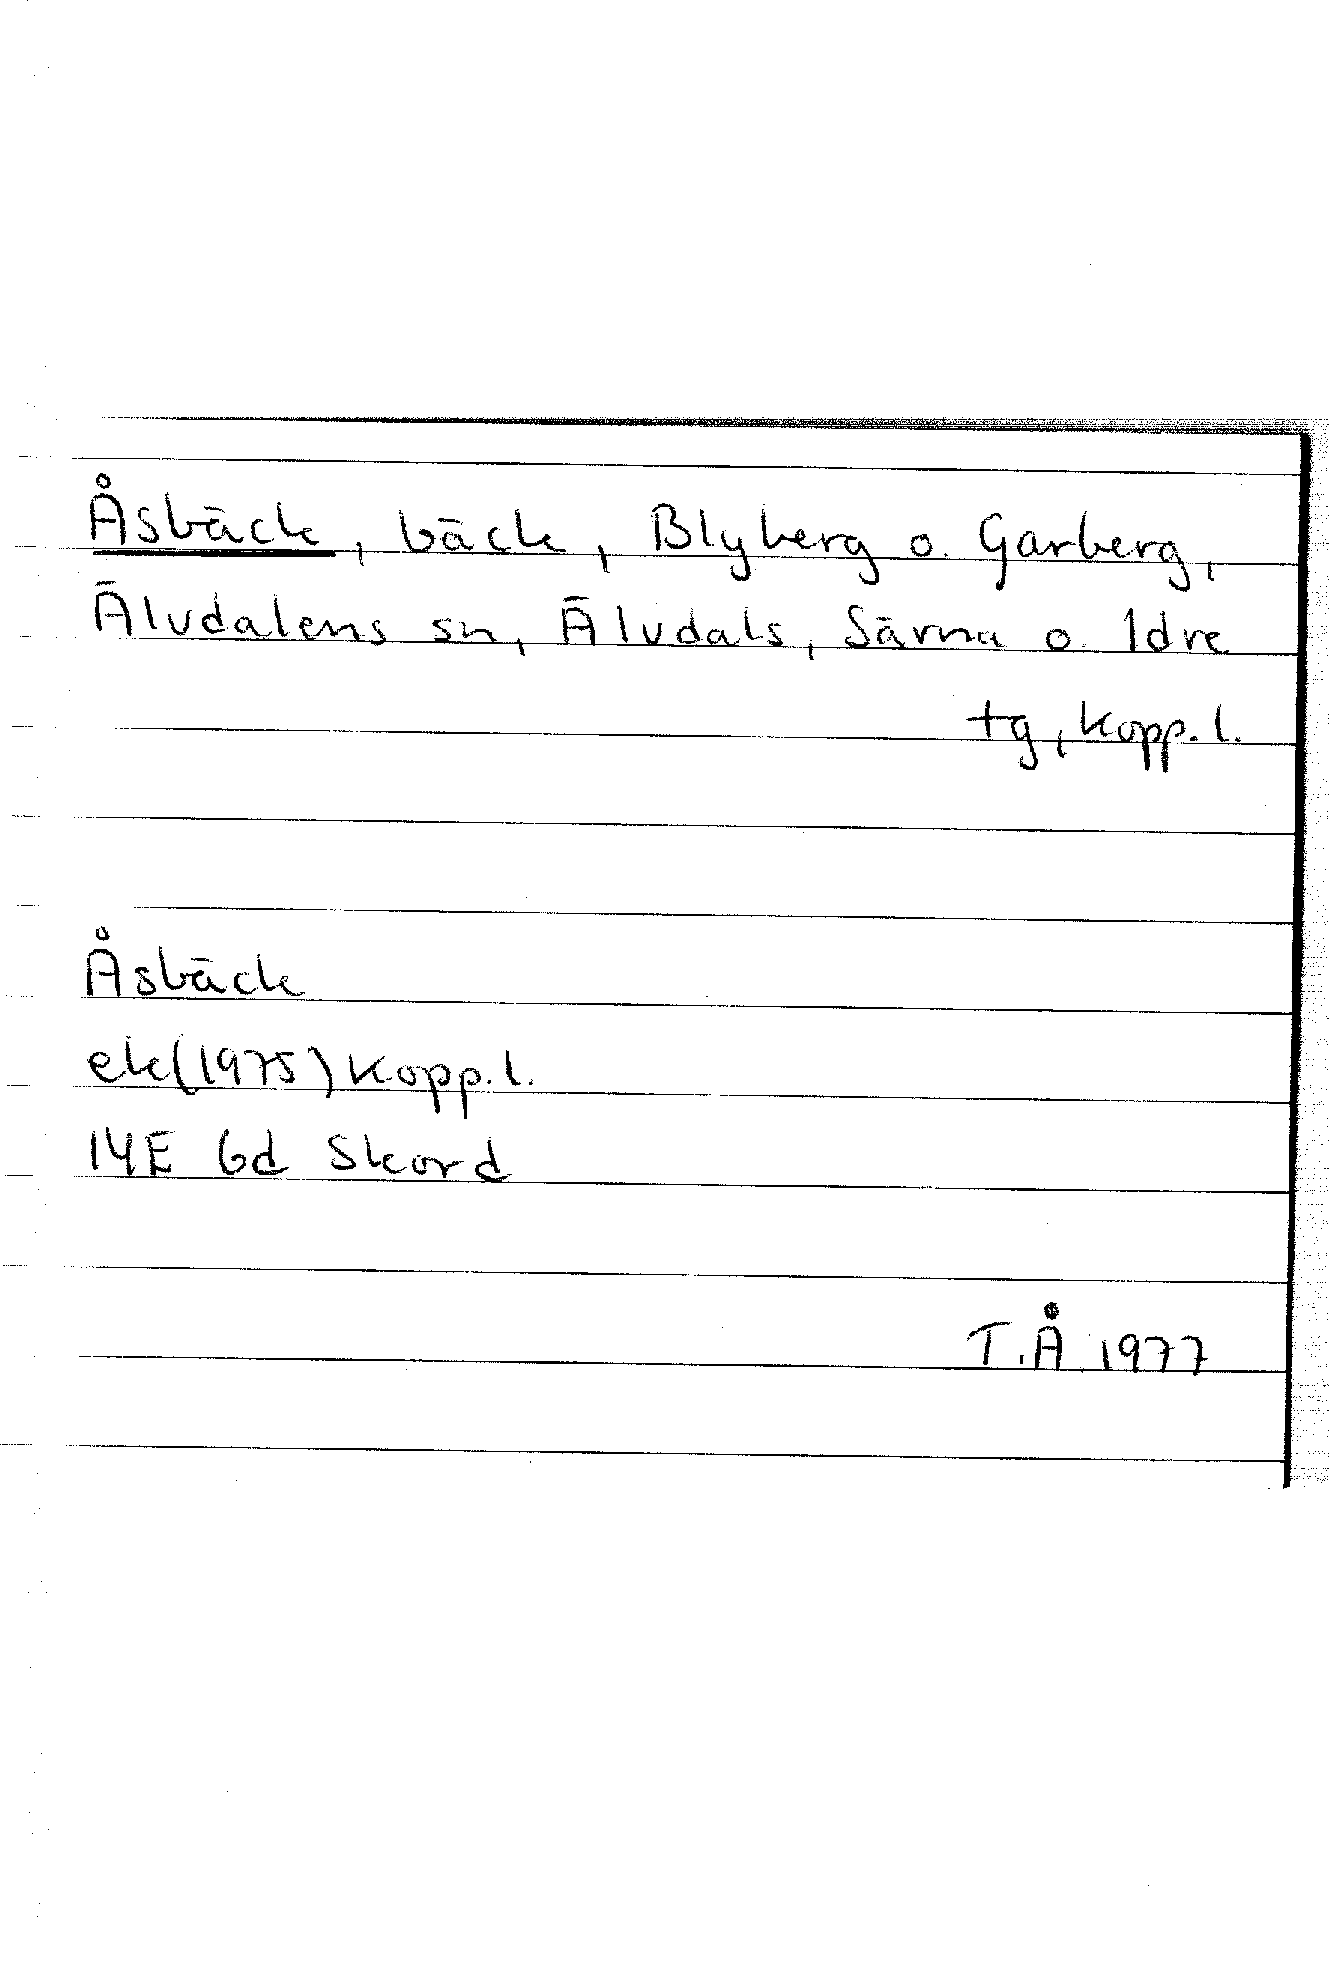 Åsbäck, bäck, Blyberg o. Garberg,
Älvdalens sn, Älvdals, Särna o. Idre
tg, Kopp. l.
Åsbäck
ek(1975) Kopp. l.
14E 6d Skord
T.Å. 1977